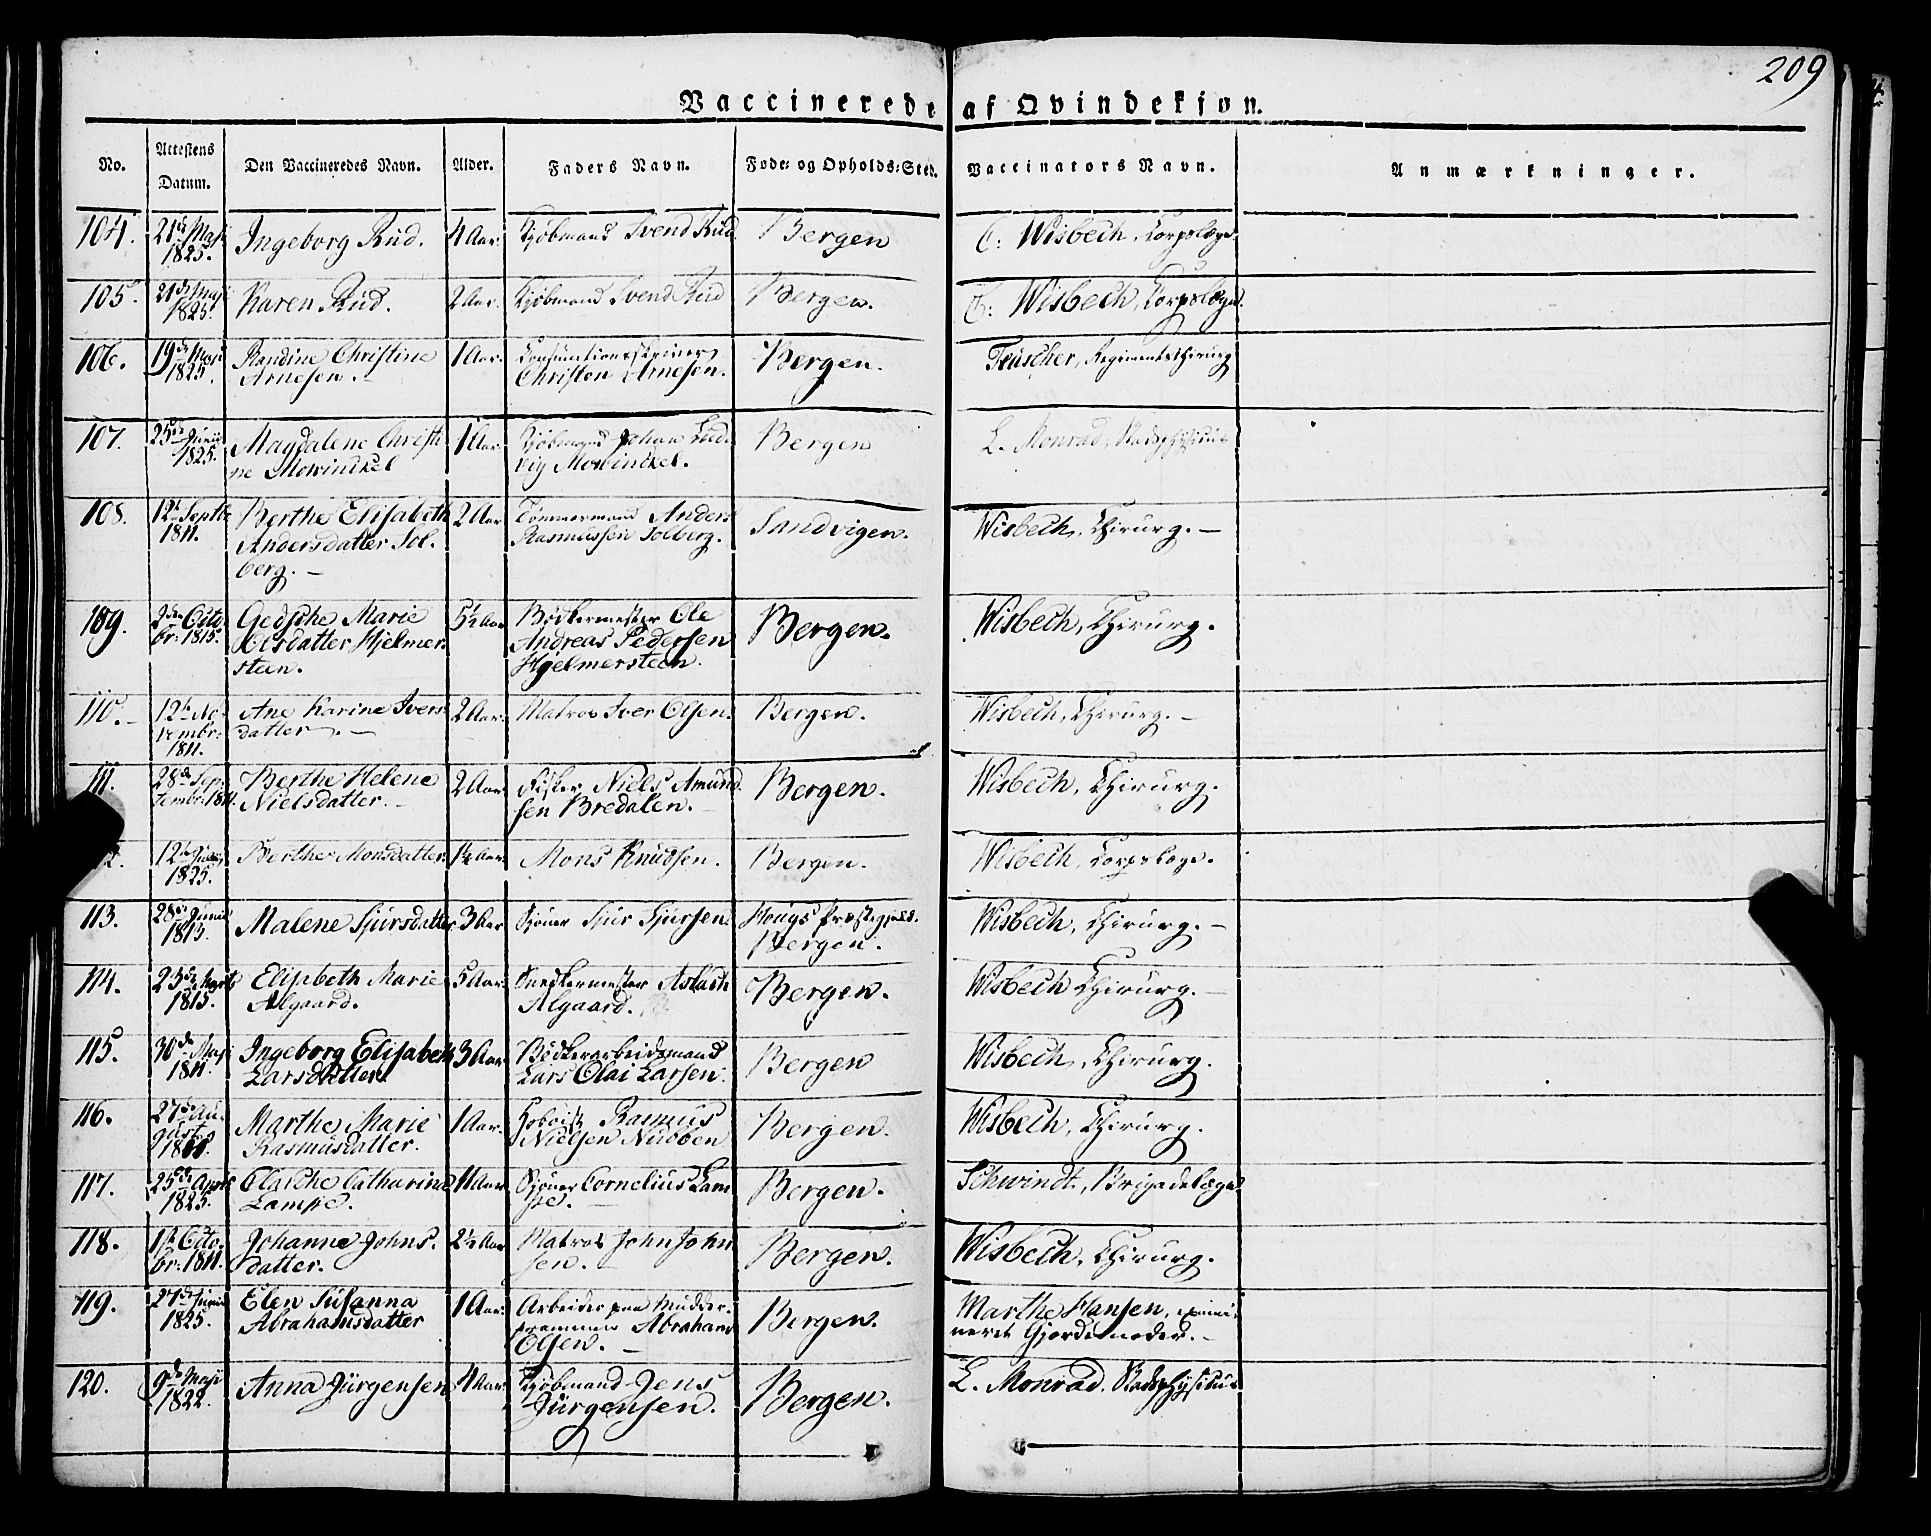 209
Vaccinerede af Qvindekjøn.
No. Attestens Datum. Den Vaccineredes Navn. Alder. Faders Navn. Føde- og Opholds-Sted. Vaccinators Navn. Anmærkninger.
104. 21de Maji 1825. Ingeborg Rüd. 4 Aar. Kjøbmand Svend Rüd Bergen C: Wisbech, Corpslæge.
105. 21de Maji 1825. Karen Rüd. 2 Aar. Kjøbmand Svend Rüd Bergen. C: Wisbech, Corpslæge.
106. 19de Maji 1825. Randine Christine Arnesen. 1 Aar. Consumtionsskriver Christen Arnesen. Bergen. Teuscher, Regimentschirurg
107. 25de Junii 1825. Magdalene Christine Mowinckel 1 Aar. Kjøbmand Johan Ludvig Mowinckel. Bergen L. Monrad, Stadsphysicus
108. 12te Septbr 1811. Berthe Elisabeth Andersdatter Solberg. 2 Aar Tømmermand Anders Rasmussen Solberg. Sandvigen. Wisbech, Chirurg.
109. 2den Octobr: 1815. Gedsche Marie Olsdatter Hjelmersteen. 5½ Aar Bødkermester Ole Andreas Pedersen Hjelmersteen. Bergen. Wisbech, Chirurg.
110. 12te Novembr: 1811. Ane Karine Iversdatter. 2 Aar. Matros Iver Olsen. Bergen. Wisbech, Chirurg.
111. 28de Septembr: 1811. Berthe Helene Nielsdatter. 2 Aar Fisker Niels Amundsen Bredalen. Bergen. Wisbech, Chirurg.
2. 12te 1825. Berthe Monsdatter. 1½ Aar. Mons Knudsen. Bergen. Wisbech, Corpslæge.
113. 28de Junii 1813. Malene Sjursdatter 3 Aar Skoner Sjur Sjursen. Hougs Præstegjeld. Bergen. Wisbech, Chirurg.
114. 25de Marts 1815. Elisabeth Marie Algaard. 5 Aar. Snedkermester Aslach Algaard. Bergen. Wisbech Chirurg.
115. 30de Maji 1811. Ingeborg Elisabeth Larsdatter. 3 Aar Bødkerarbeidsmand Lars Olai Larsen. Bergen Wisbech, Chirurg.
116. 27de August 1811. Marthe Marie Rasmusdatter. 1 Aar. Hoboist Rasmus Nielsen Nubben Bergen. Wisbech, Chirurg.
117. 25de April 1825. Clasche Catharine Lampe. 11 Aar Skoner Cornelius Lampe. Bergen. Schwindt, Brigadelæge
118. 1te Octobr: 1811. Johanne Johnsdatter. 2½ Aar Matros John Johnsen. Bergen. Wisbech, Chirurg.
119. 27de Junii 1825. Elen Susanna Abrahamsdatter 1 Aar. Arbeider paa Mudderprammen Abraham Olsen. Bergen. Marthe Hansen, examineret Gjordemoder.
120. 9de Maji 1822. Anna Jürgensen 4 Aar. Kjøbmand Jens Jürgensen. Bergen. L. Monrad. Stadsphysicus